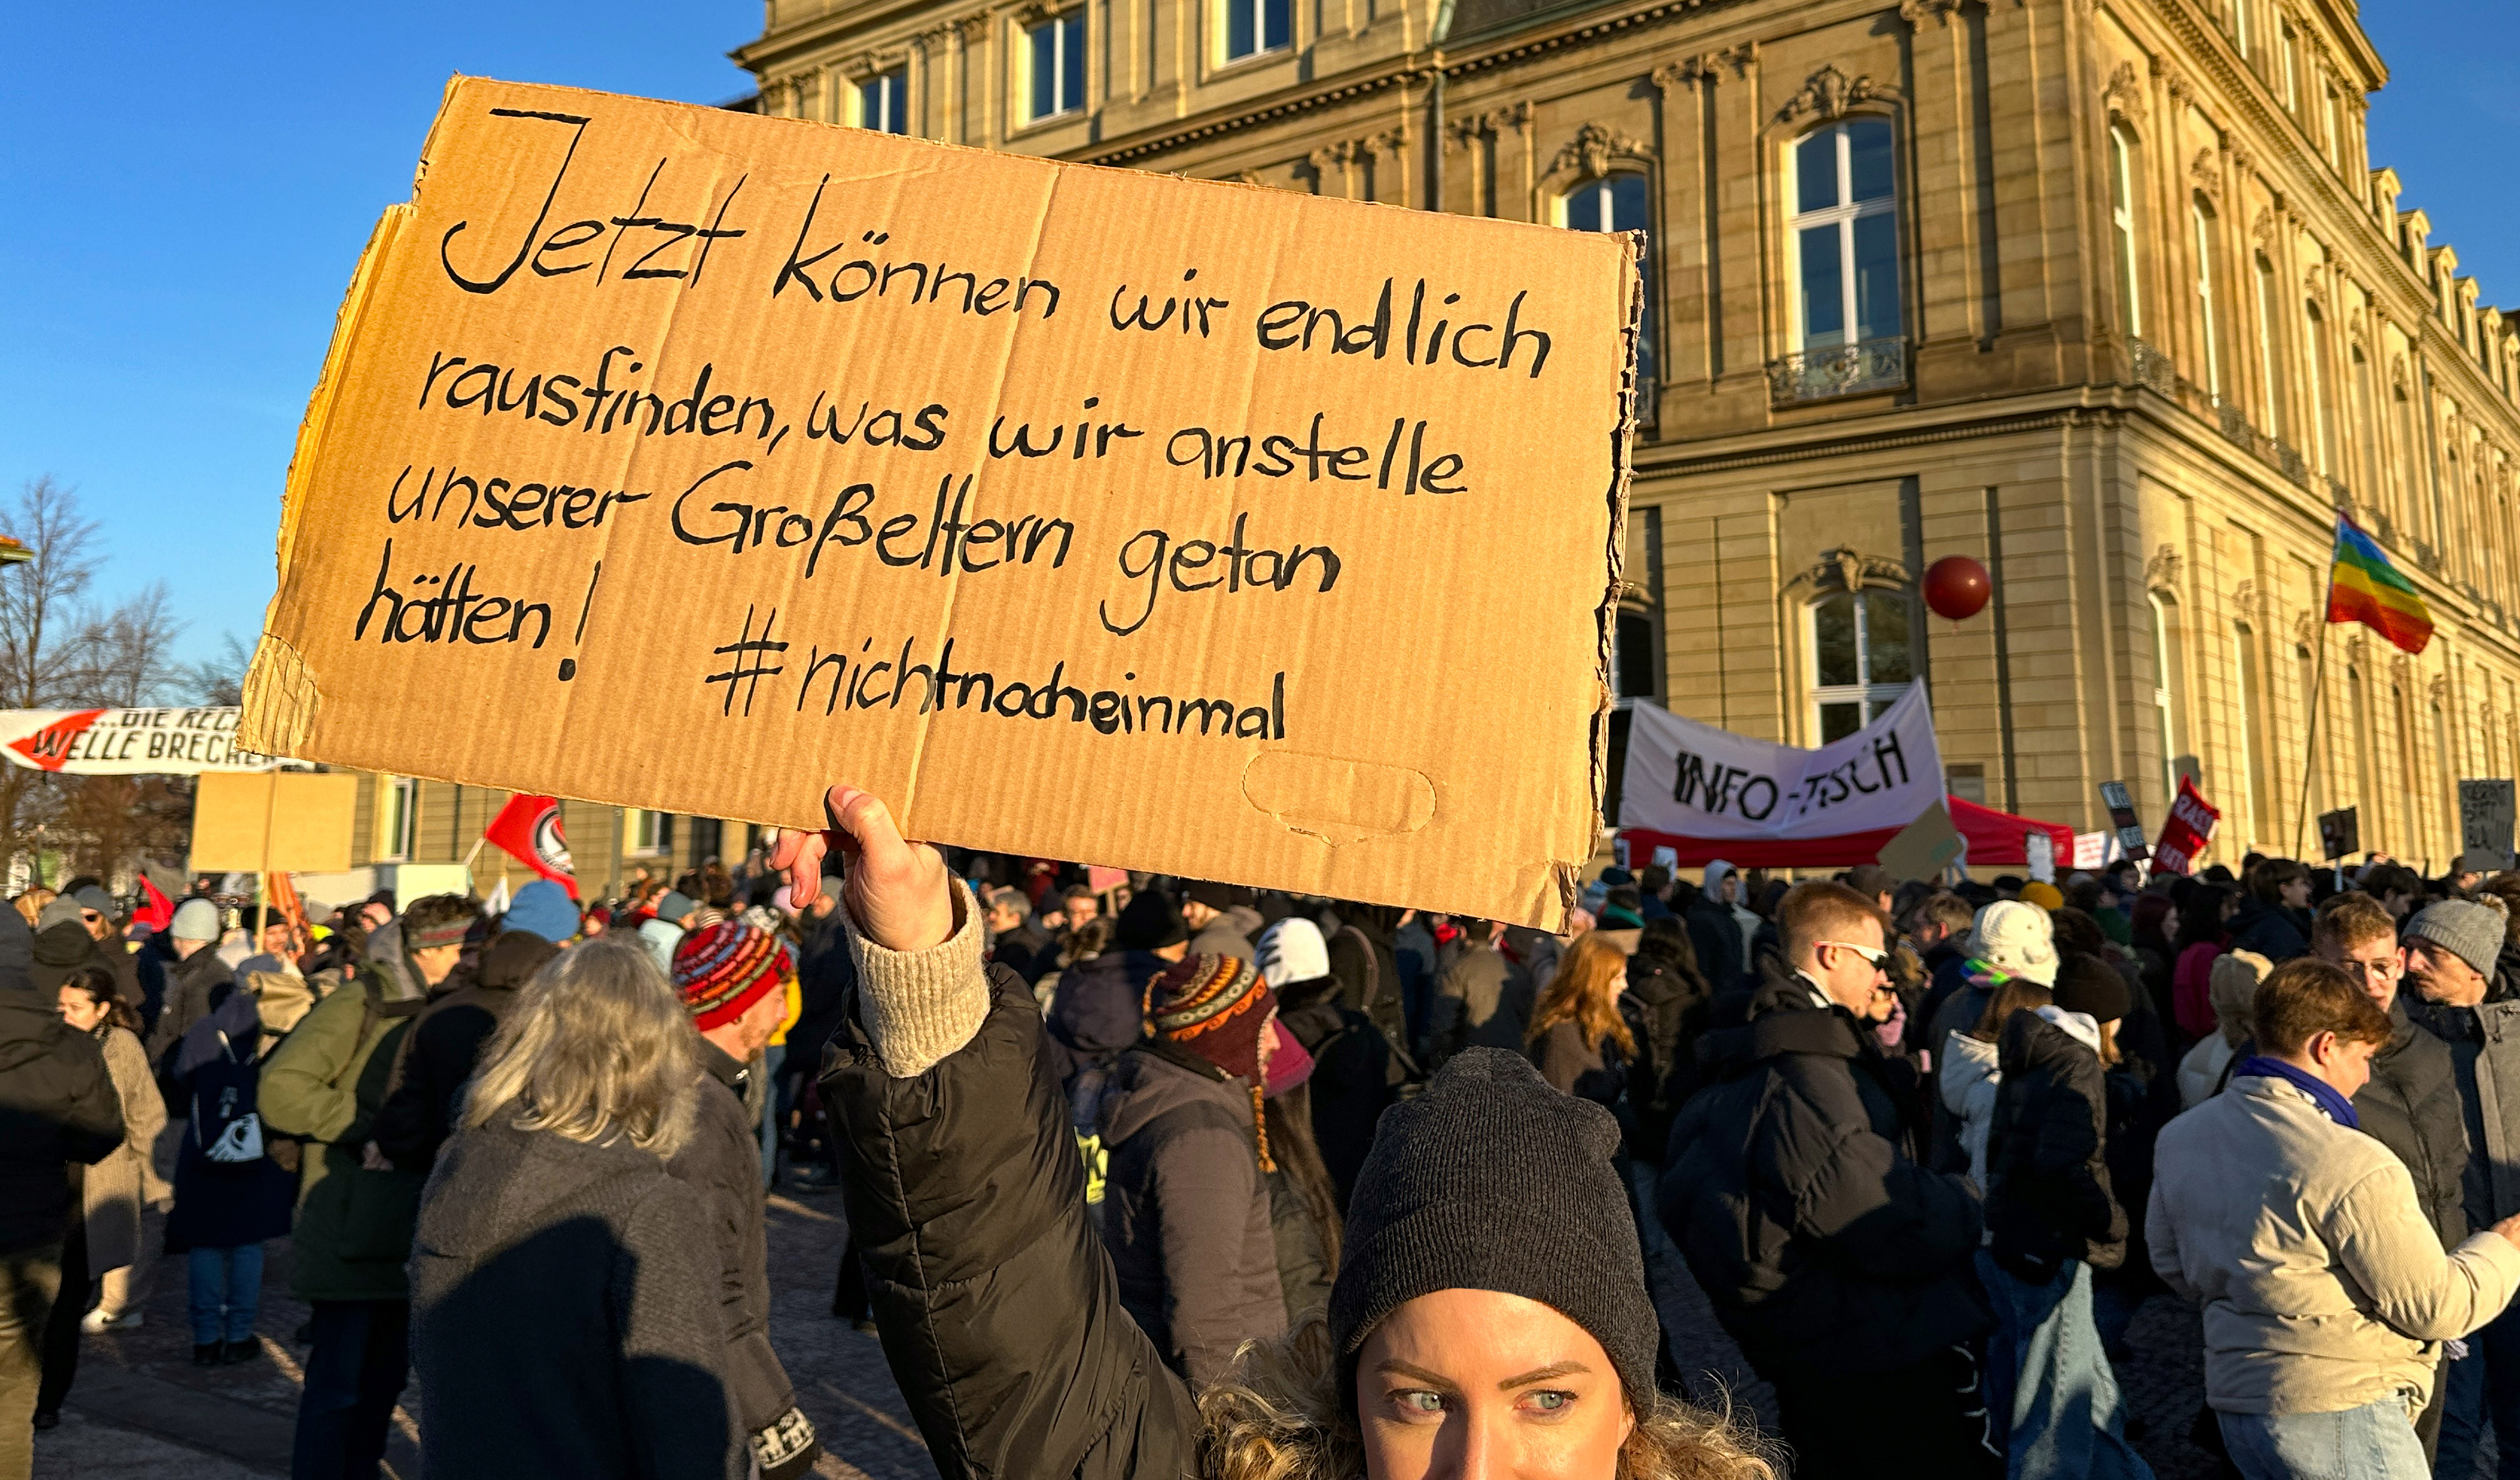 Jetzt können wir endlich
rausfinden, was wir anstelle
unserer Großeltern getan
hätten!
#nichtnocheinmal
...DIE REC
WELLE BRECHEN
INFO-TISCH